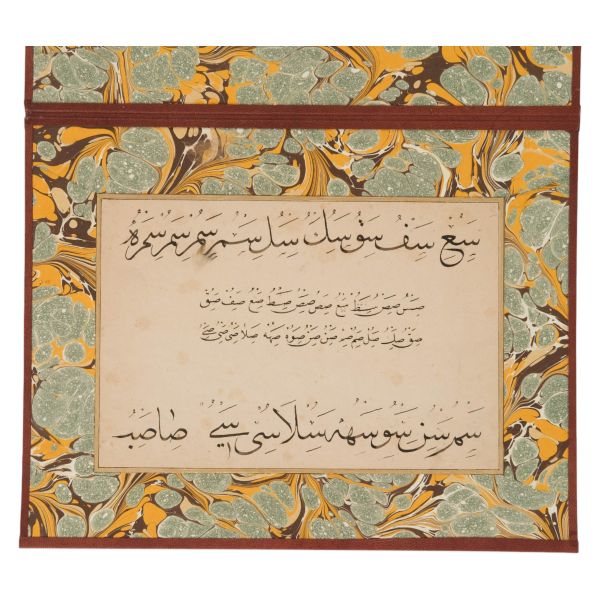 سع سف سق سك سل سم سم سمر سمره
صس صص صط صع صص صص صط صع صف صق
صق صك صل صم صم صن صن صوه صهه صلا صى صى صى
سم سن سو سهه سلا سى سى صا صب صد